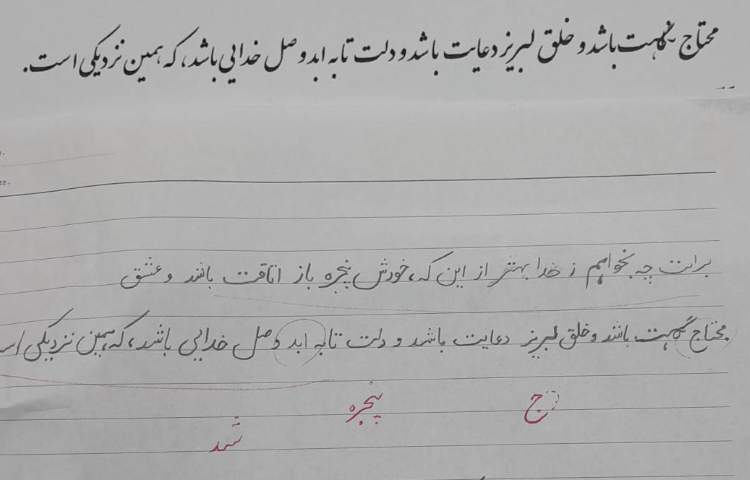 محتاج نگهت باشد و خلق لبریز دعایت باشد و دلت تا به ابد وصل خدایی باشد، که همین نزدیکی است.
برایت چه بخواهم ز خدا بهتر از این که، خودش پنجره باز اتاقت باشد و عشق
محتاج نگهت باشد و خلق لبریز دعایت باشد و دلت تا به ابد وصل خدایی باشد، که همین نزدیکی
ج
پنجره
شد